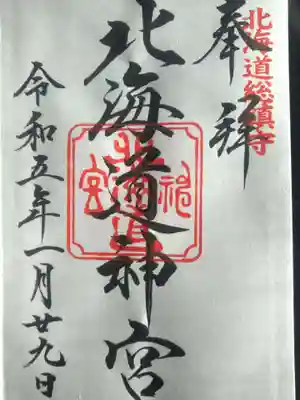 北海道総鎮守
奉拝
北海道神宮
令和五年一月廿九日
北海道神宮